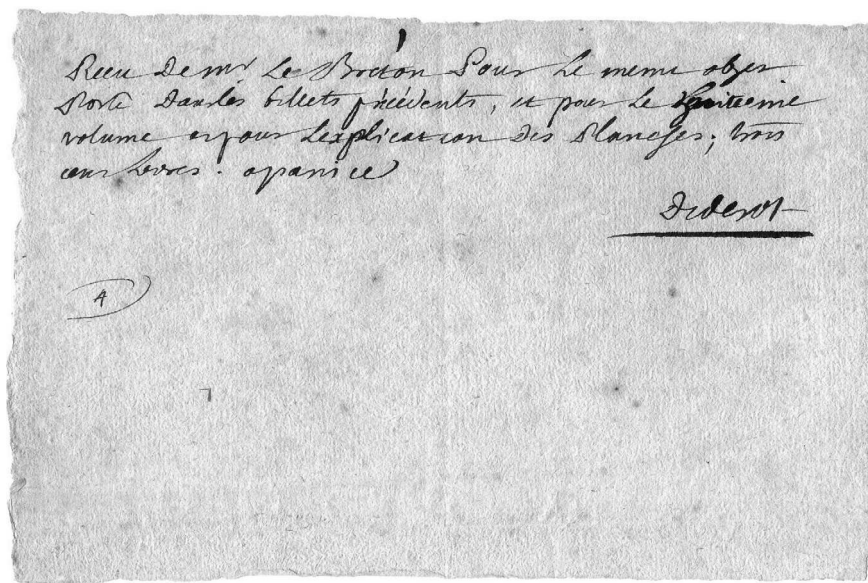 Reçu de mr Le Breton Pour Le meme objet
Porté dans les billets précédents, et pour Le huitieme
volume et pour L'explication des Planches; trois
cent Livres. a paris ce
Diderot
A